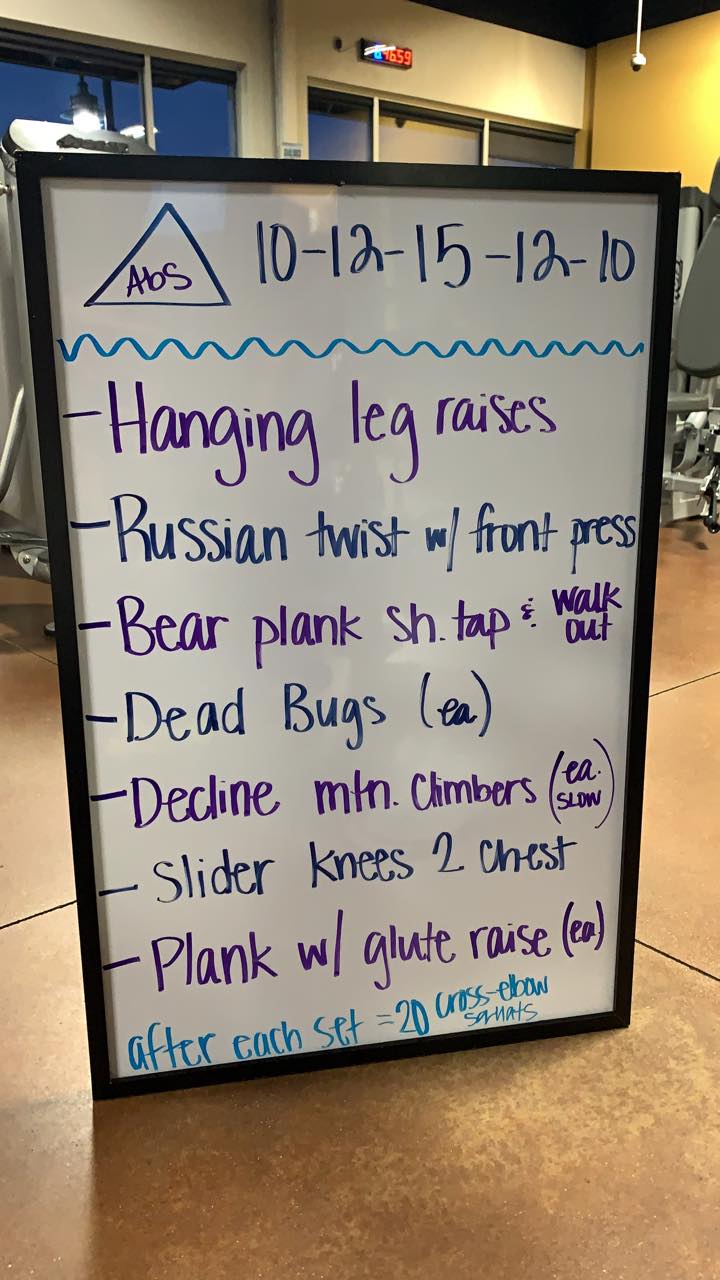 AbS 10-12-15-12-10
- Hanging leg raises
- Russian twist w/ front press
- Bear plank sh. tap & walk out
- Dead Bugs (ea)
- Decline mtn. Climbers (ea. SLOW)
- Slider knees 2 chest
- Plank w/ glute raise (ea)
after each set = 20 cross-elbow squats